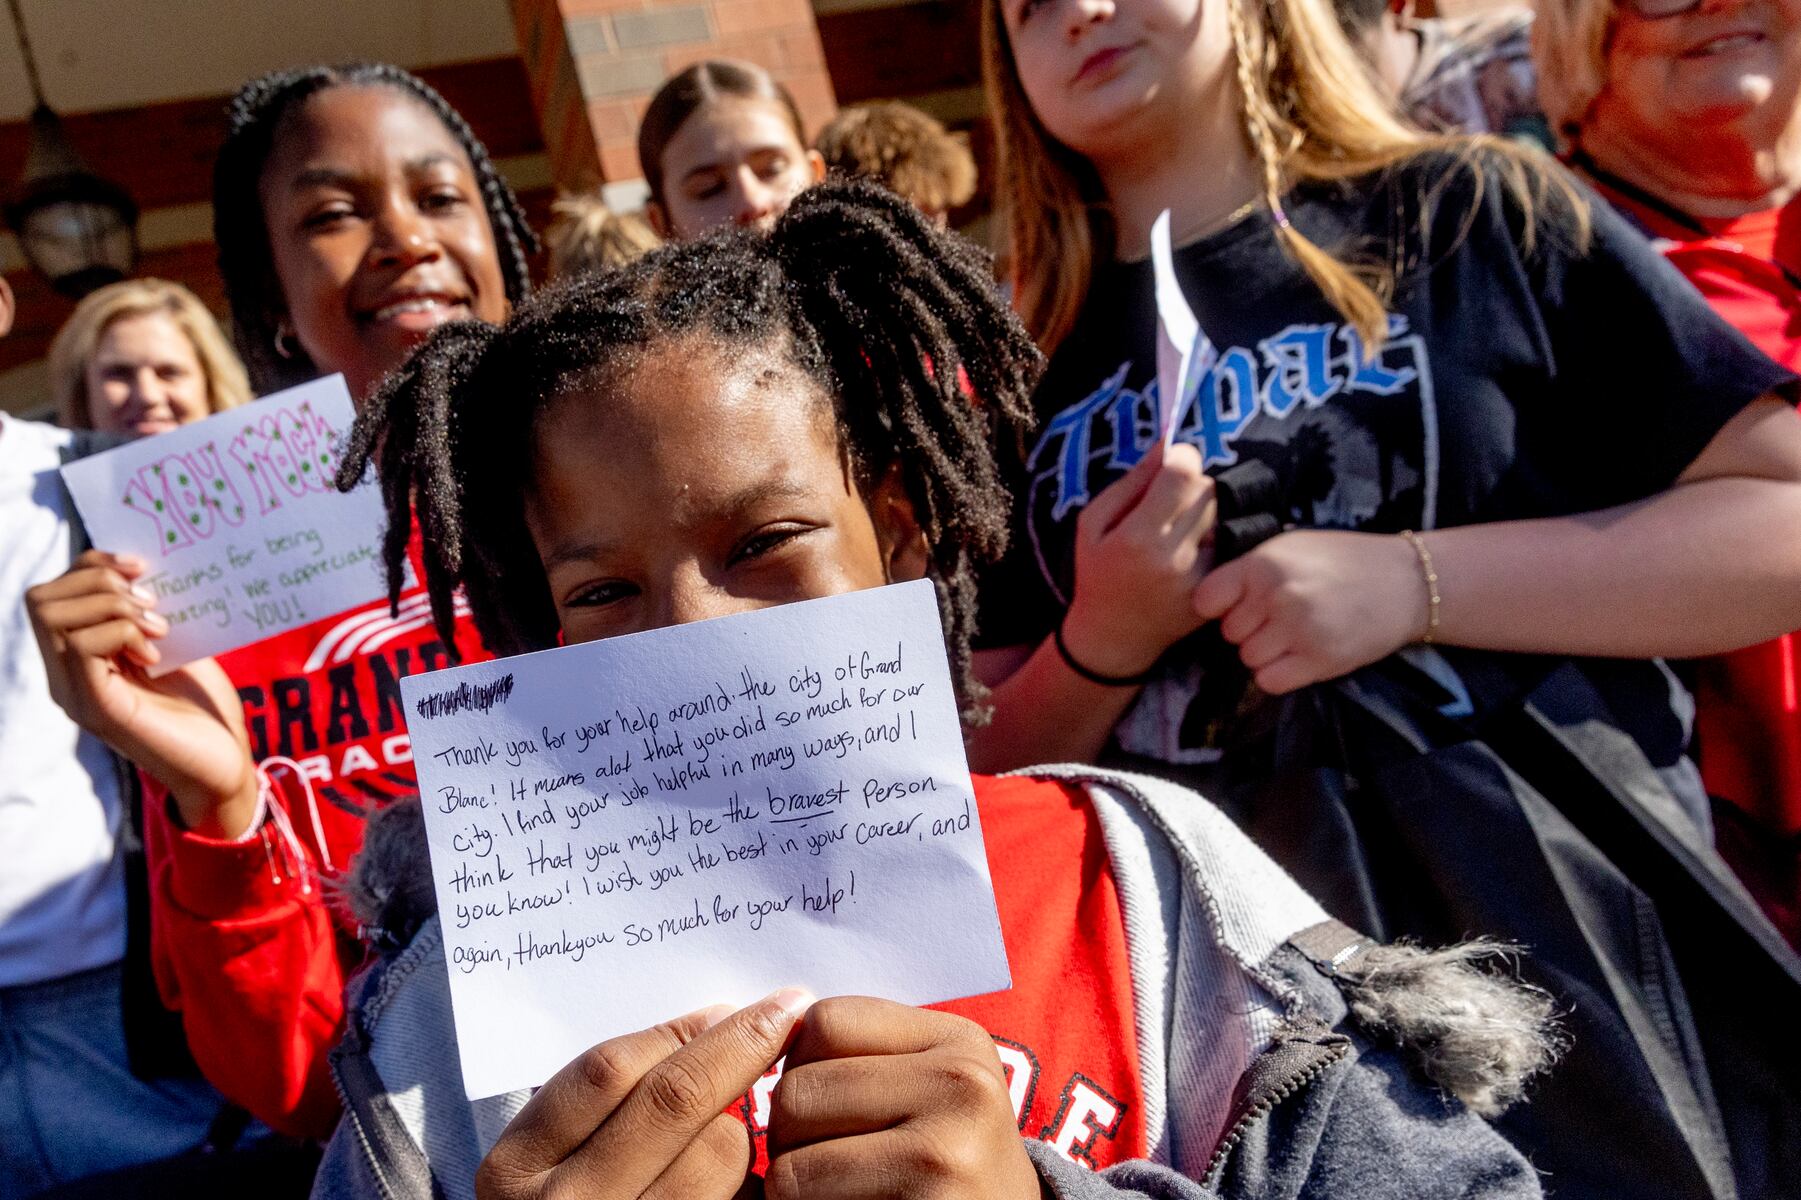 YOU ROCK
Thanks for being
amazing! We appreciate
YOU!
GRAN
TRAC
Tupac
Thank you for your help around the city of Grand
Blanc! It means alot that you did so much for our
city. I find your job helpful in many ways, and I
think that you might be the bravest person
you know! I wish you the best in your career, and
again, thankyou so much for your help!
DE